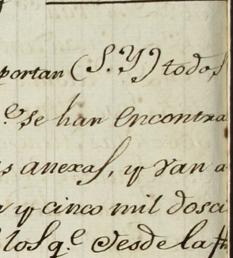 portan (S. Y) todos
e se han encontra
s anexas, y van a
y cinco mil dosci
los q.e desde la